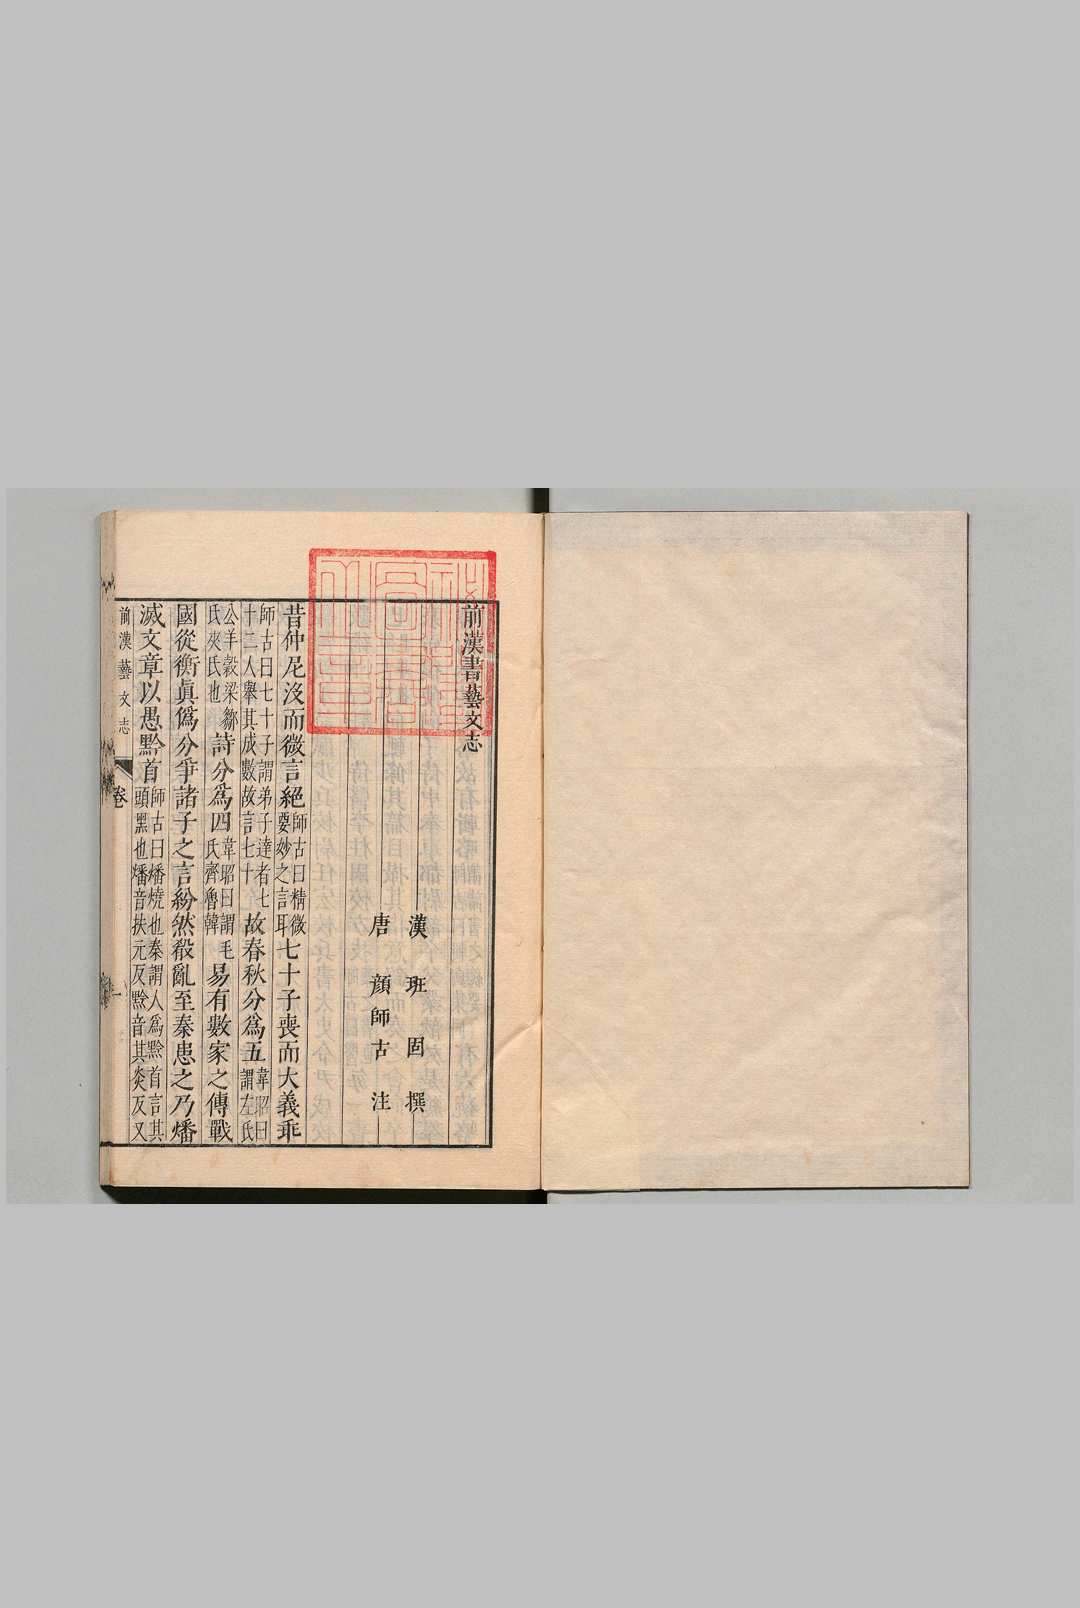 前漢書藝文志
漢 班固 撰
唐 顏師古 注
昔仲尼沒而微言絕師古曰精微要妙之言耳七十子喪而大義乖
師古曰七十子謂弟子達者七十二人舉其成數故言七十故春秋分爲五韋昭曰謂左氏
公羊穀梁鄒氏夾氏也詩分爲四韋昭曰謂毛氏齊魯韓易有數家之傳戰
國從衡眞僞分爭諸子之言紛然殽亂至秦患之乃燔
滅文章以愚黔首師古曰燔燒也秦謂人爲黔首言其頭黑也燔音扶元反黔音其炎反又
前漢藝文志 卷 一